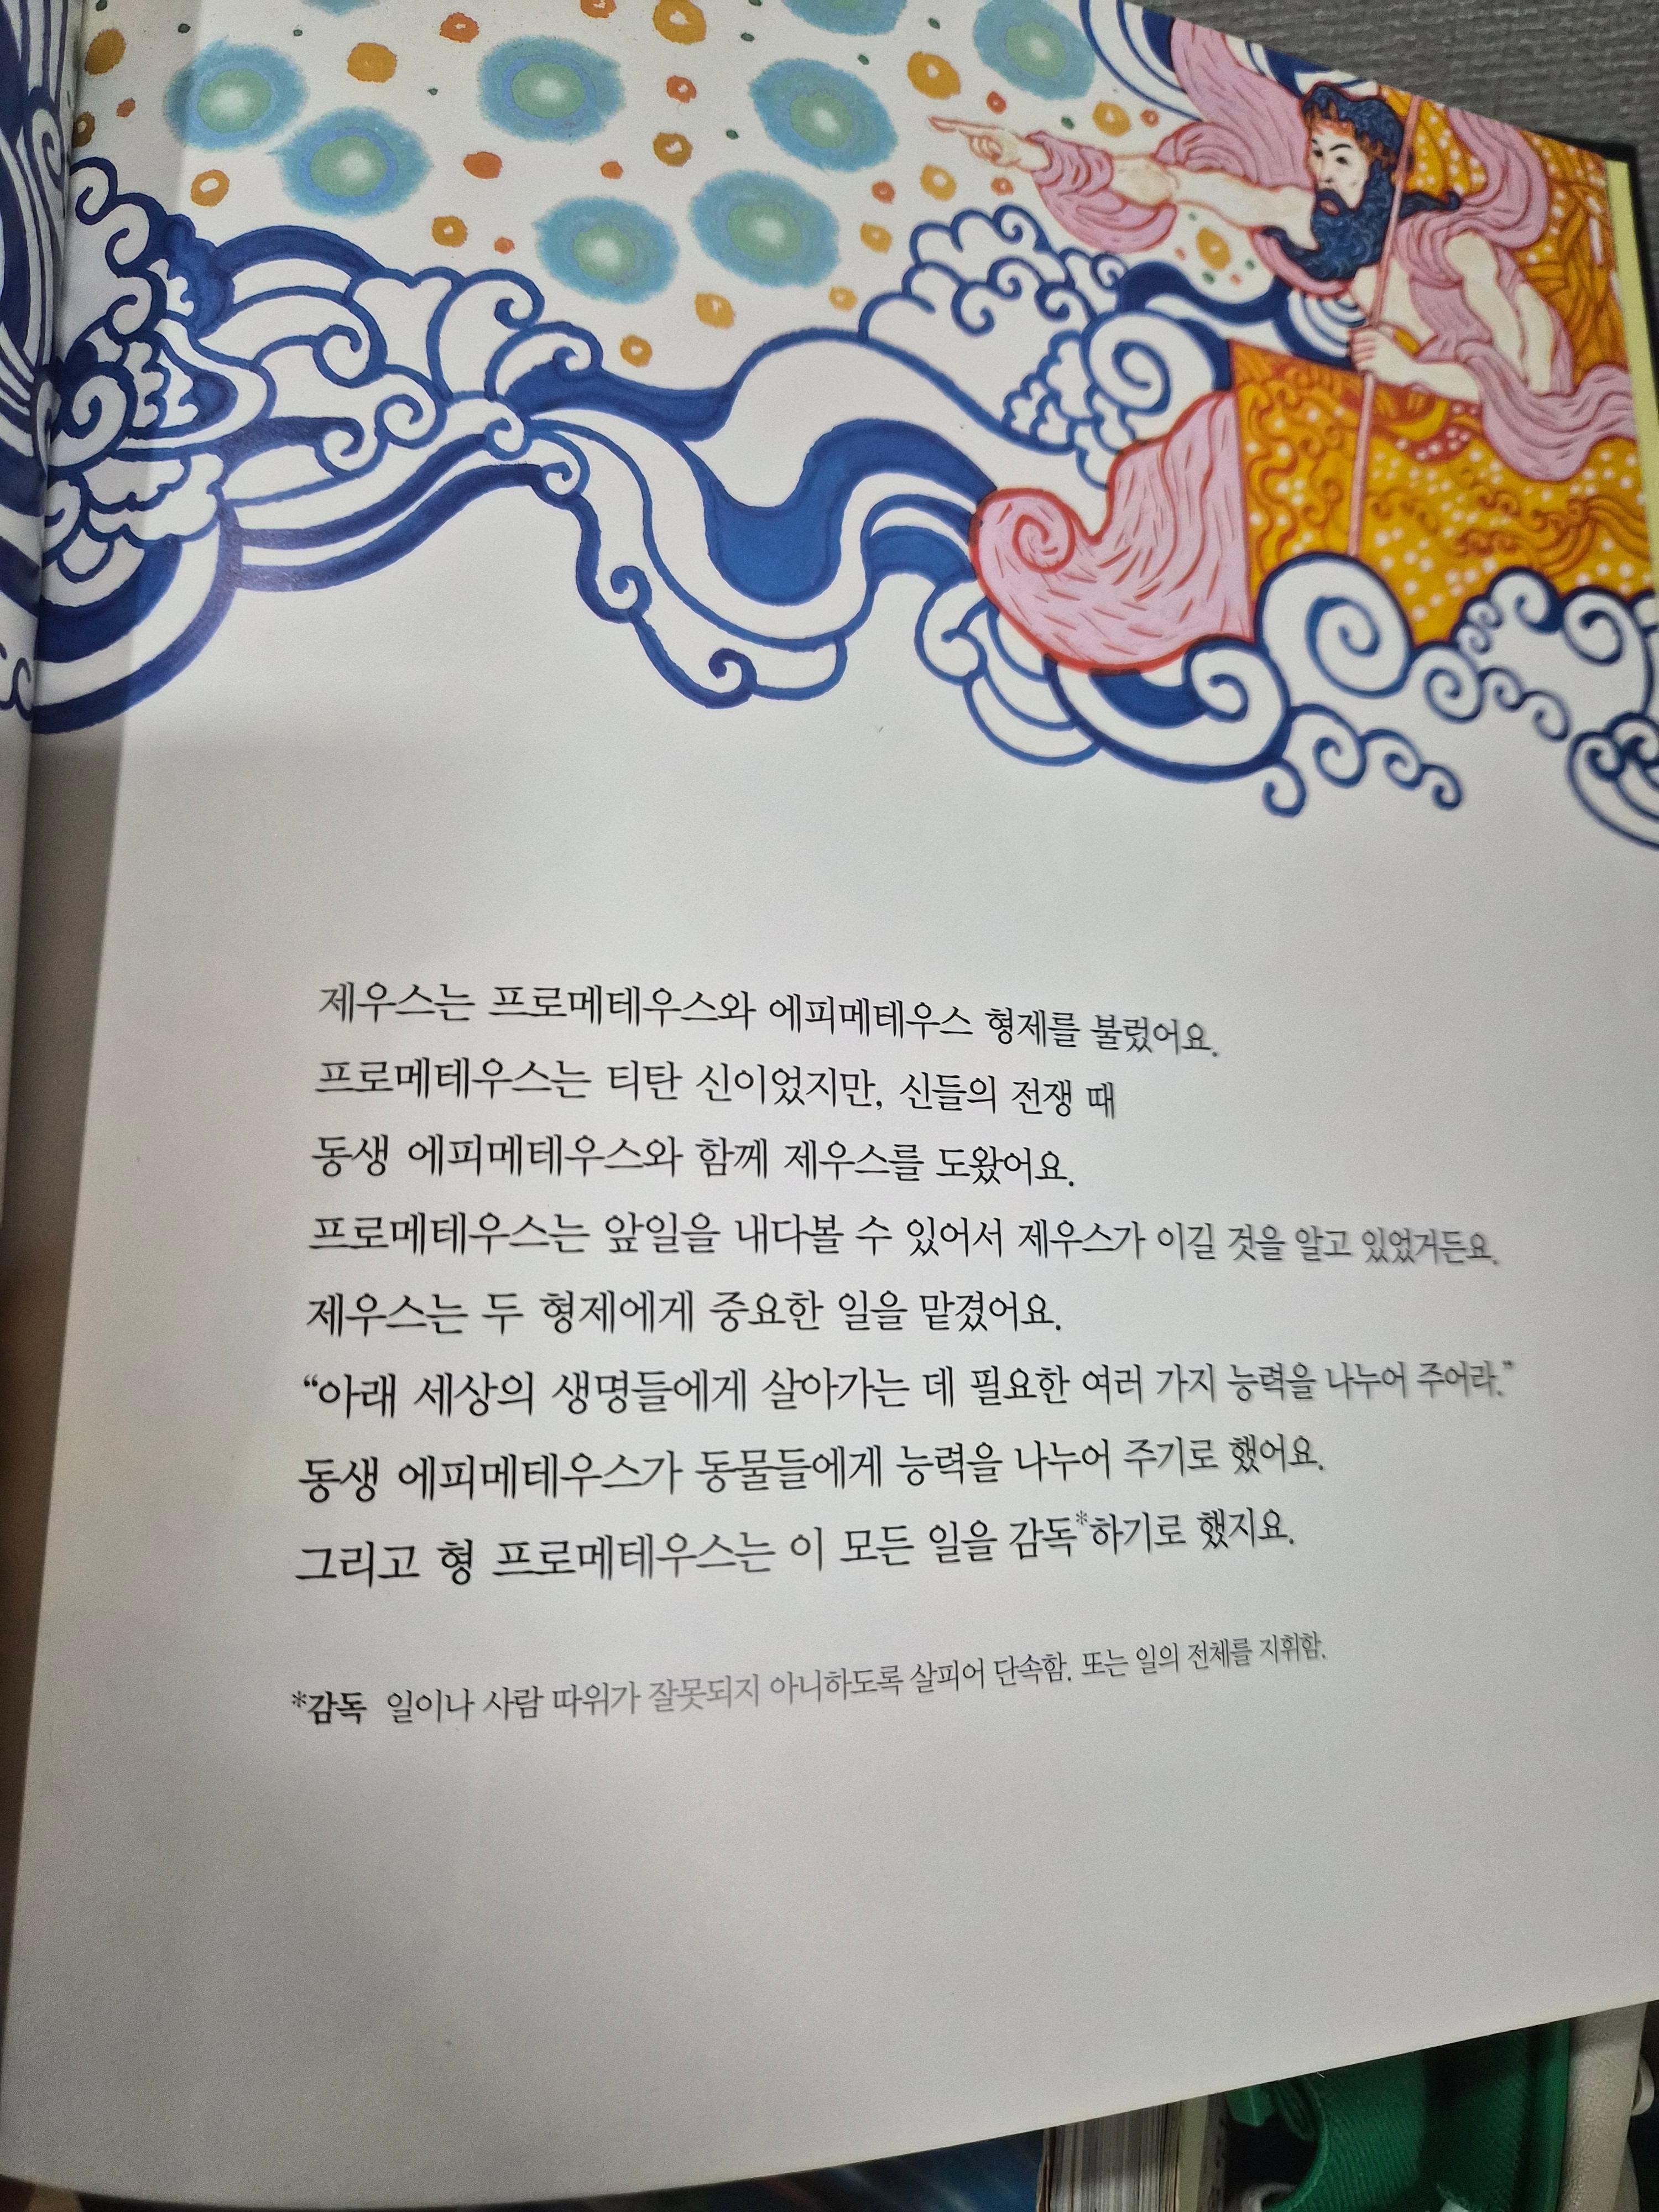 제우스는 프로메테우스와 에피메테우스 형제를 불렀어요.
프로메테우스는 티탄 신이었지만, 신들의 전쟁 때
동생 에피메테우스와 함께 제우스를 도왔어요.
프로메테우스는 앞일을 내다볼 수 있어서 제우스가 이길 것을 알고 있었거든요.
제우스는 두 형제에게 중요한 일을 맡겼어요.
“아래 세상의 생명들에게 살아가는 데 필요한 여러 가지 능력을 나누어 주어라.”
동생 에피메테우스가 동물들에게 능력을 나누어 주기로 했어요.
그리고 형 프로메테우스는 이 모든 일을 감독*하기로 했지요.
*감독 일이나 사람 따위가 잘못되지 아니하도록 살피어 단속함. 또는 일의 전체를 지휘함.